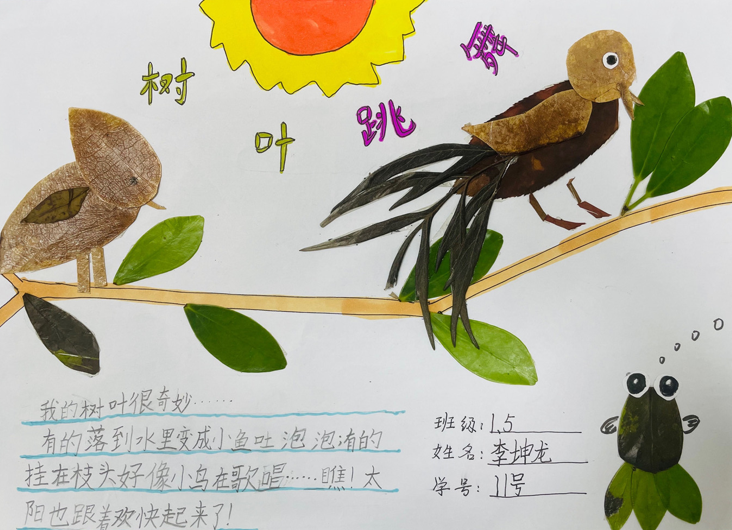 树叶跳舞
我的树叶很奇妙……
有的落到水里变成小鱼吐泡泡有的
挂在枝头好像小鸟在歌唱……瞧!太
阳也跟着欢快起来了!
班级:1.5
姓名:李坤龙
学号:11号